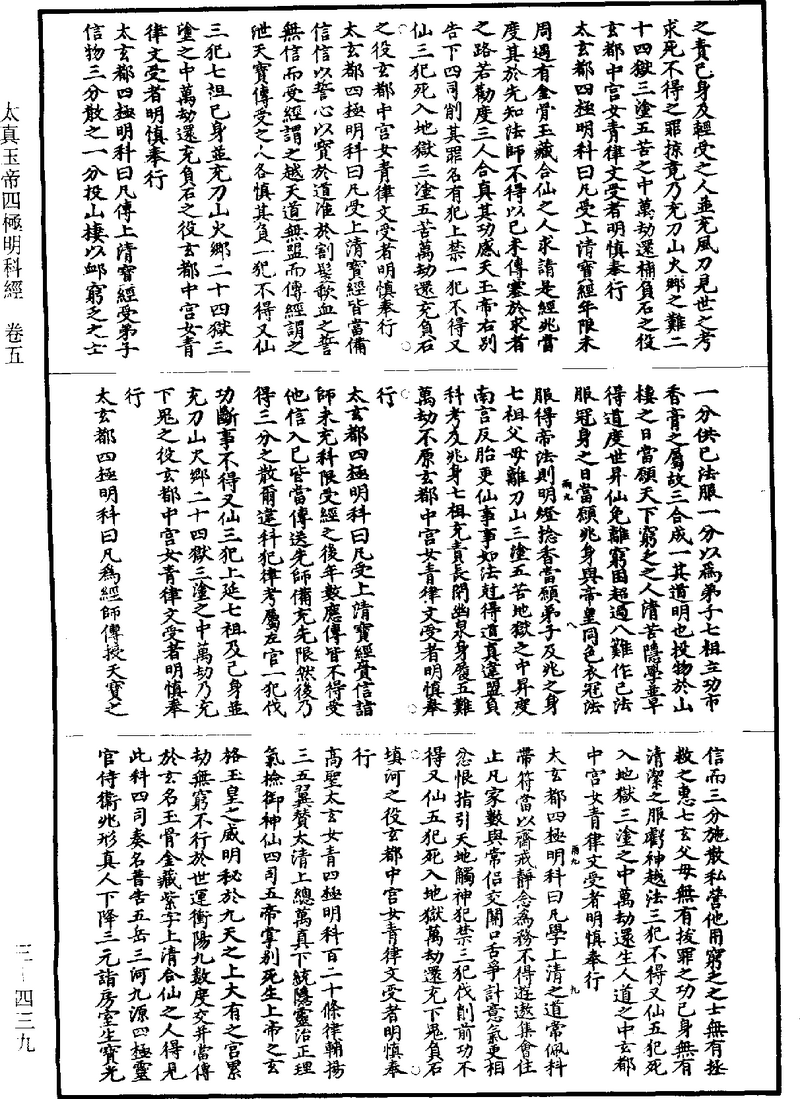 之責已身及輕受之人並充風刀見世之考
求死不得之罪掠竟乃充刀山火鄉之難二
十四獄三塗五苦之中萬劫還補負石之役
玄都中宮女青律文受者明慎奉行
太玄都四極明科曰凡受上清寶經年限未
周遇有金骨玉藏合仙之人求請是經兆當
度其於先知法師不得以已未傳塞於求者
之路若勸度三人合真其功感天玉帝右別
告下四司削其罪名有犯上禁一犯不得又
仙三犯死入地獄三塗五苦萬劫還充負石
之役玄都中宮女青律文受者明慎奉行
太玄都四極明科曰凡受上清寶經皆當備
信信以誓心以寶於道准於割髮歃血之誓
無信而受經謂之越天道無盟而傳經謂之
泄天寶傳受之人各慎其負一犯不得又仙
三犯七祖已身並充刀山火鄉二十四獄三
塗之中萬劫還充負石之役玄都中宮女青
律文受者明慎奉行
太玄都四極明科曰凡傳上清寶經受弟子
信物三分散之一分投山棲以卹窮乏之士
一分供已法服一分以為弟子七祖立功市
香膏之屬故三合成一其道明也投物於山
棲之日當願天下窮乏之人清苦隱學並早
得道度世昇仙免離窮困超過八難作已法
服冠身之日當願兆身與帝皇同色衣冠法
服得帝法則明燈捻香當願弟子及兆之身
七祖父母離刀山三塗五苦地獄之中昇度
南宮反胎更仙事事如法尅得道真違盟負
科考及兆身七祖充責長閉幽泉身履五難
萬劫不原玄都中宮女青律文受者明慎奉
行
太玄都四極明科曰凡受上清寶經賫信詣
師未充科限受經之後年數應傳皆不得受
他信入已皆當傳送先師備充先限然後乃
得三分之散爾違科犯律考屬左官一犯伐
功斷事不得又仙三犯上延七祖及已身並
充刀山火鄉二十四獄三塗之中萬劫乃充
下鬼之役玄都中宮女青律文受者明慎奉
行
太玄都四極明科曰凡為經師傳授天寶之
信而三分施散私營他用窮乏之士無有拯
救之惠七玄父母無有拔罪之功已身無有
清潔之服虧神越法三犯不得又仙五犯死
入地獄三塗之中萬劫還生人道之中玄都
中宮女青律文受者明慎奉行
太玄都四極明科曰凡學上清之道常佩科
帶符當以齋戒靜念為務不得遊遨集會住
止凡家數與常侶交關口舌爭計意氣更相
忿恨指引天地觸神犯禁三犯伐削前功不
得又仙五犯死入地獄萬劫還充下鬼負石
填河之役玄都中宮女青律文受者明慎奉
行
高聖太玄女青四極明科百二十條律輔揚
三五翼贊太清上總萬真下統隱靈治正理
氣檢御神仙四司五帝掌別死生上帝之玄
格玉皇之威明祕於九天之上大有之宮累
劫無窮不行於世運衝陽九數度交并當傳
於玄名玉骨金藏紫字上清合仙之人得見
此科四司奏名普告五岳三河九源四極靈
官侍衛兆形真人下降三元詣房室生寶光
太真玉帝四極明科經　卷五
三－四三九